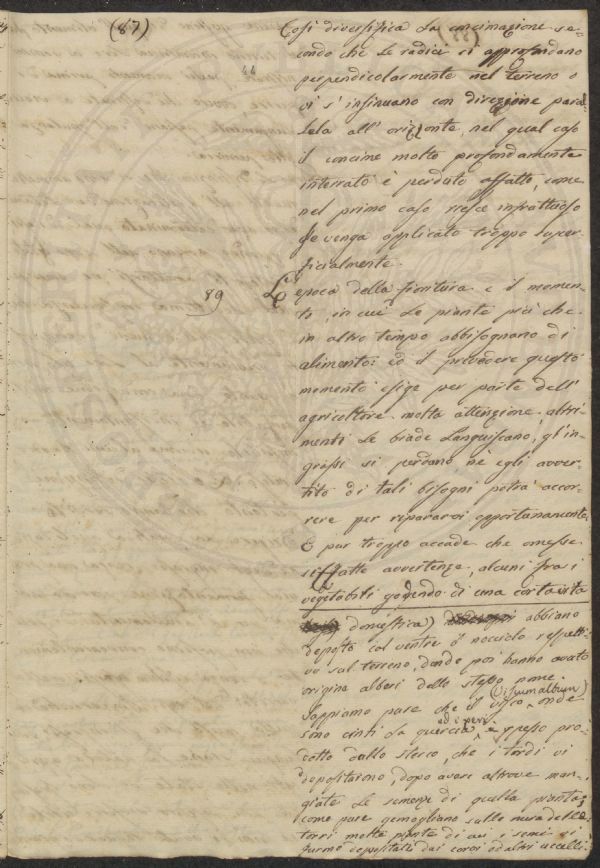 (87)
Così diversifica la concimazione se-
condo che le radici si approfondano
44
perpendicolarmente nel terreno o
vi s'insinuano con direzione para-
lela all'orizzonte, nel qual caso
il concime molto profondamente
interrato è perduto affatto, come
nel primo caso riesce infruttuoso
se venga applicato troppo super-
ficialmente.
89
L'epoca della fioritura è il momen-
to, in cui le piante più che
in altro tempo abbisognano di
alimento: ed il prevedere questo
momento esige per parte dell'
agricoltore molta attenzione, altri-
menti le biade languiscano, gl'in-
grassi si perdano, nè egli avver-
tito di tali bisogni potrà accor-
rere per ripararvi opportunamente.
E pur troppo accade che omesse
siffatte avvertenze, alcuni fra i
vegetabili godendo di una corta vita
domestica) abbiano
deposto col ventre il nocciolo rispetti-
vo sul terreno, donde poi hanno avuto
origine alberi dello stesso nome.
(Viscum album)
Sappiamo pure che il visco, onde
ed i peri
sono cinti la quercia, è spesso pro-
dotto dallo sterco, che i tordi vi
depositarono, dopo avere altrove man-
giate le semenze di quella pianta;
come pure germogliano sulle mura delle
torri molte piante di cui i semi vi
furono depositati dai corvi od altri uccelli